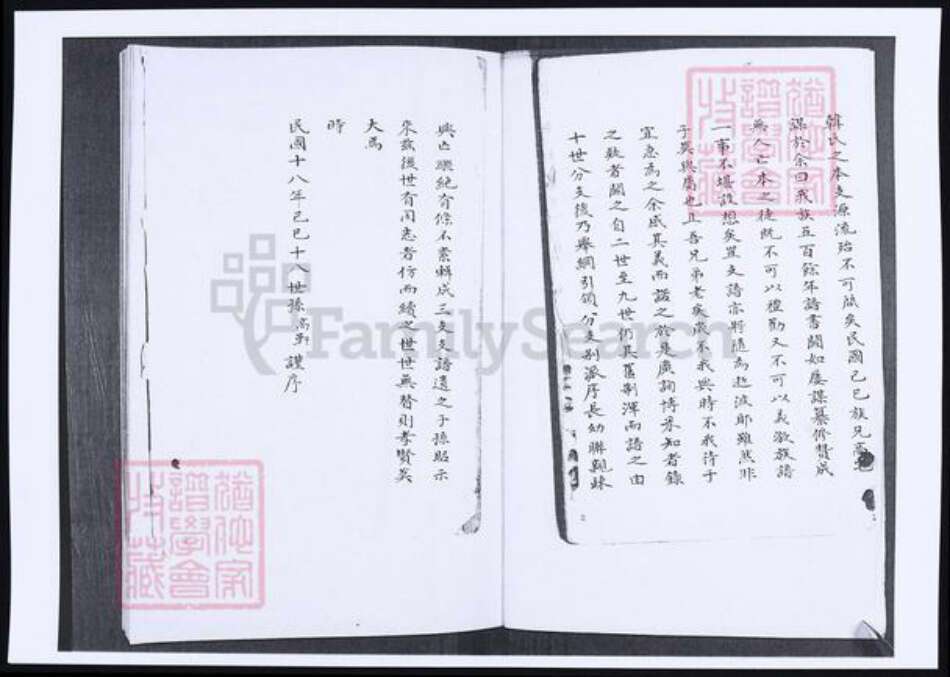 韓氏之本支源流殆不可紊矣民國己巳族兄高
謀於余曰我族五百餘年譜書闕如屢謀纂修贊成
無人亡本之徒既不可以禮勸又不可以義激族譜
一事不堪設想矣豈支譜亦將隨為逝波耶雖然非
子莫與屬也且吾兄弟老矣歲不我與時不我待子
宜急為之余感其義而諾之於是廣詢博采知者錄
之疑者闕之自二世至九世仍其舊制渾而譜之由
十世分支後乃舉綱引領分支別派序長幼聯親疎
興亡繼絕有條不紊輯成三支支譜遺之子孫昭示
來茲後世有同志者仿而續之世世無替則孝賢莫
大焉
時
民國十八年己巳十八世孫高 謹序
譜學會
家
藏
FamilySearch
譜學會
家
藏